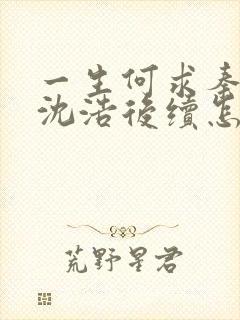 一生何求秦
沈浩後續怎
荒野星君